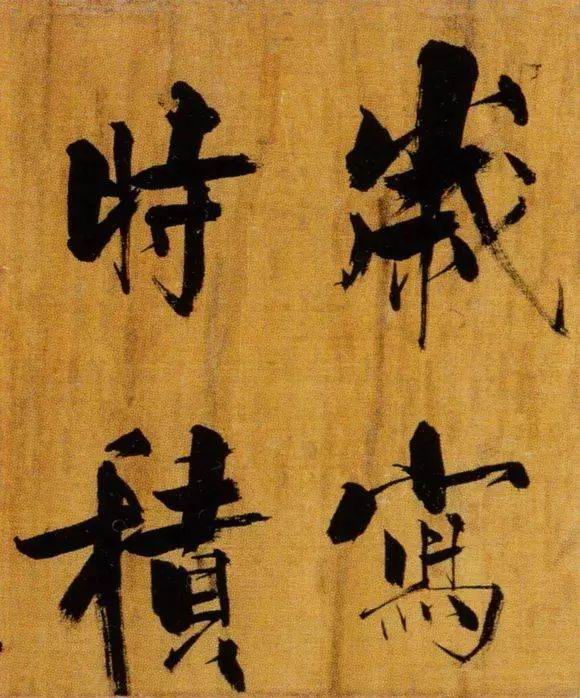 歲寫
時積